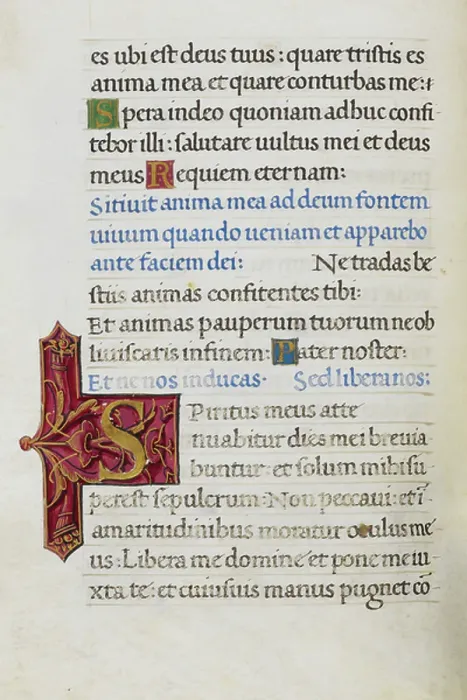 es ubi est deus tuus : quare tristis es
anima mea et quare conturbas me :
Spera in deo quoniam adhuc confi
tebor illi : salutare uultus mei et deus
meus Requiem eternam :
Sitiuit anima mea ad deum fontem
uiuum quando ueniam et apparebo
ante faciem dei : Ne tradas be
stiis animas confitentes tibi :
Et animas pauperum tuorum ne ob
liuiscaris in finem : Pater noster :
Et ne nos inducas · Sed libera nos :
Spiritus meus atte
nuabitur dies mei breuia
buntur et solum mihi su
perest sepulcrum : Non peccaui : et ī
amaritudinibus moratur oculus me
us : Libera me domine et pone me iu
xta te : et cuiusuis manus pugnet cō